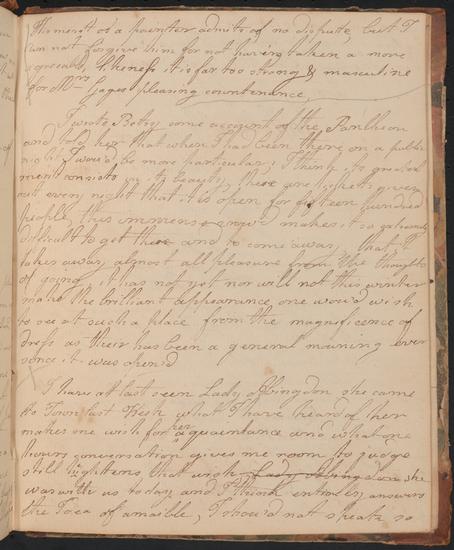 His merit as a painter admits of no dispute, but I
can not forgive him for not having taken a more
agreeable likeness it is far too strong & masculine
for Mrs Gages pleasing countenance,
I wrote Betsy some account of the Pantheon
and told her that when I had been there on a publi
night I wou'd be more particular, I think its greatest
merit consists in its beauty, there are tickets given
out every night that it is open for fifteen hundred
people, this immense crowd makes it so extreamly
difficult to get there and to come away, that it
takes away almost all pleasure from the thoughts
of going, it has not yet nor will not this winter
make the brilliant appearance one wou'd wish
to see at such a place from the magnificence of
dress as their has been a general muning ever
since it was open'd
I have at last seen Lady Abingdon she came
to Town last Week what I have heard of her
makes me wish for her acquaintance and what one
hours conversation gives me room to judge
still hightens that wish she
was with us to day and I think entirely answers
the Idea of amiable, I shou'd not speak so